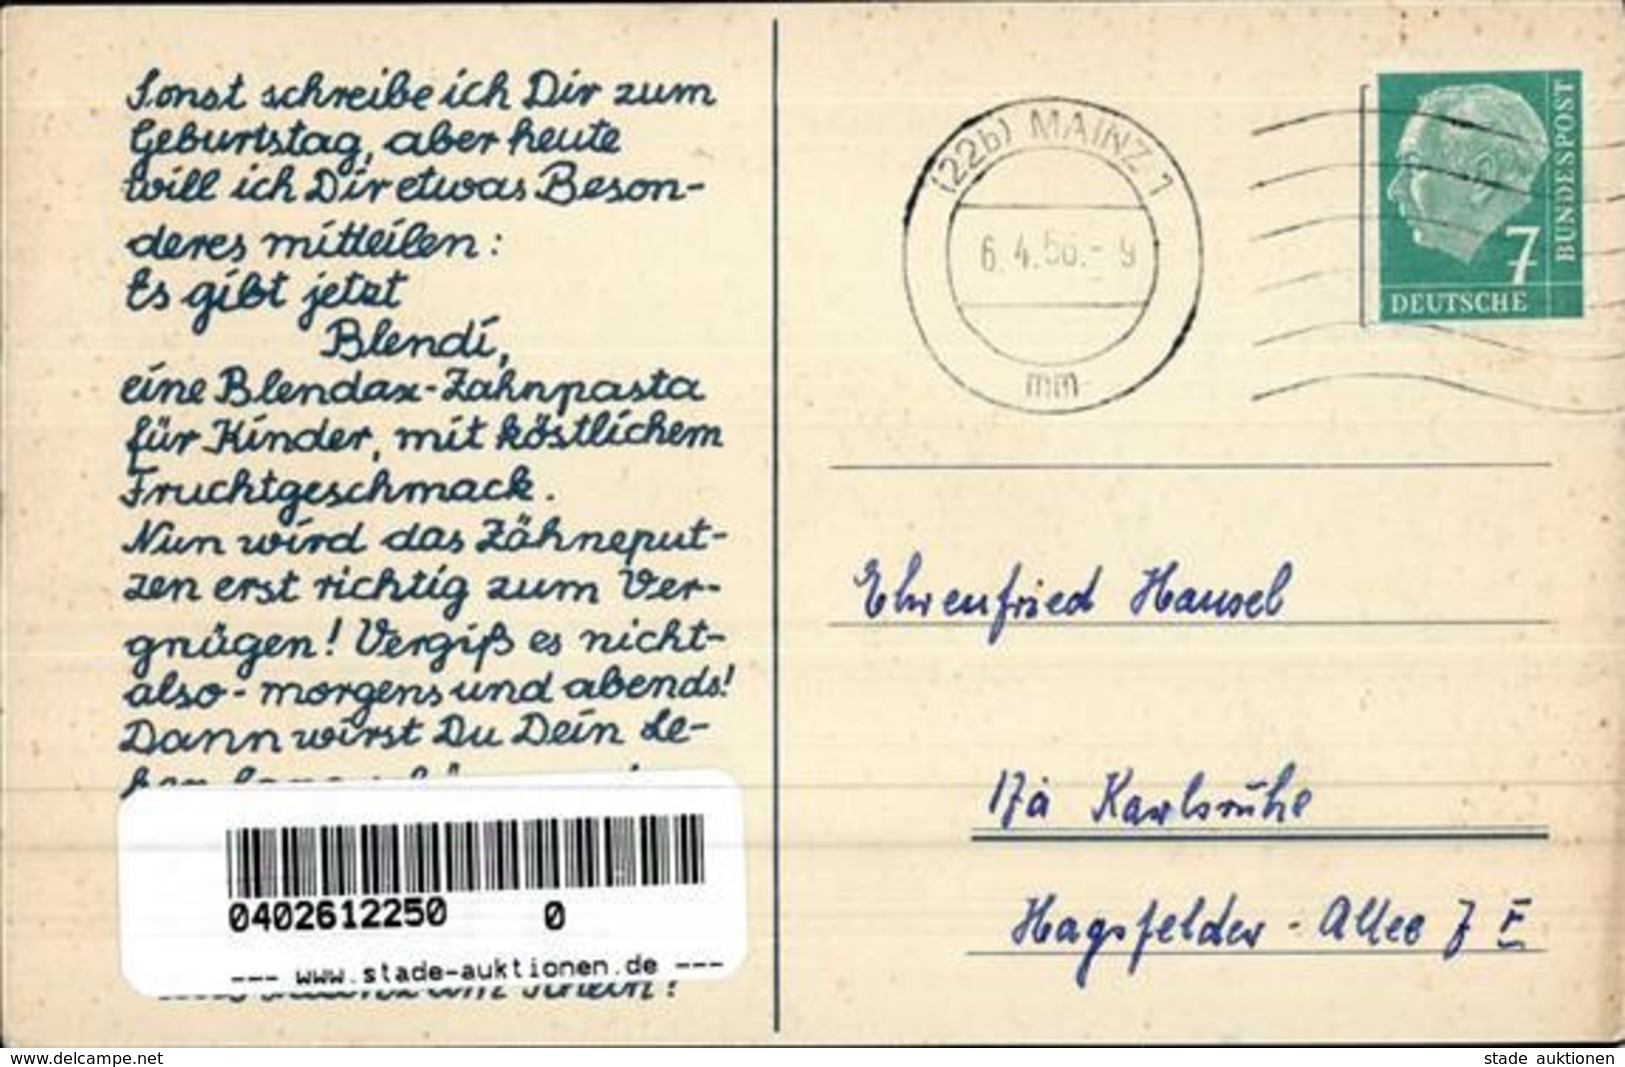 Sonst schreibe ich Dir zum
Geburtstag, aber heute
will ich Dir etwas Beson-
deres mitteilen:
Es gibt jetzt
Blendi,
eine Blendax-Zahnpasta
für Kinder, mit köstlichem
Fruchtgeschmack.
Nun wird das Zähneput-
zen erst richtig zum Ver-
gnügen! Vergiß es nicht-
also - morgens und abends!
Dann wirst Du Dein Le-
ben lang
0402612250 0
--- www.stade-auktionen.de ---
am Rhein!
(22b) MAINZ 1
6.4.56.-9
mm
7
DEUTSCHE
BUNDESPOST
Ehrenfried Hansel
17a Karlsruhe
Hagsfelder-Allee 7 E
www.delcampe.net
stade auktionen